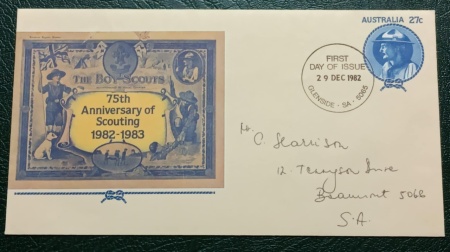 AUSTRALIA 27c
FIRST
DAY OF ISSUE
29 DEC 1982
GLENSIDE - SA - 5065
THE BOY SCOUTS
75th
Anniversary of
Scouting
1982-1983
C. Harrison
12. Tennyson
Beaumont 5066
S.A.